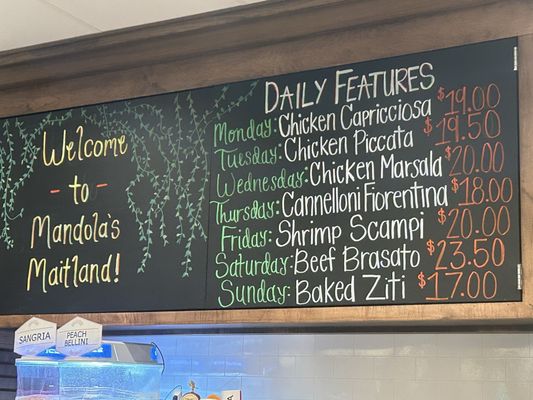 Welcome
- to -
Mandola's
Maitland!
DAILY FEATURES
Monday: Chicken Capricciosa $19.00
Tuesday: Chicken Piccata $19.50
Wednesday: Chicken Marsala $20.00
Thursday: Cannelloni Fiorentina $18.00
Friday: Shrimp Scampi $20.00
Saturday: Beef Brasato $23.50
Sunday: Baked Ziti $17.00
SANGRIA
PEACH
BELLINI